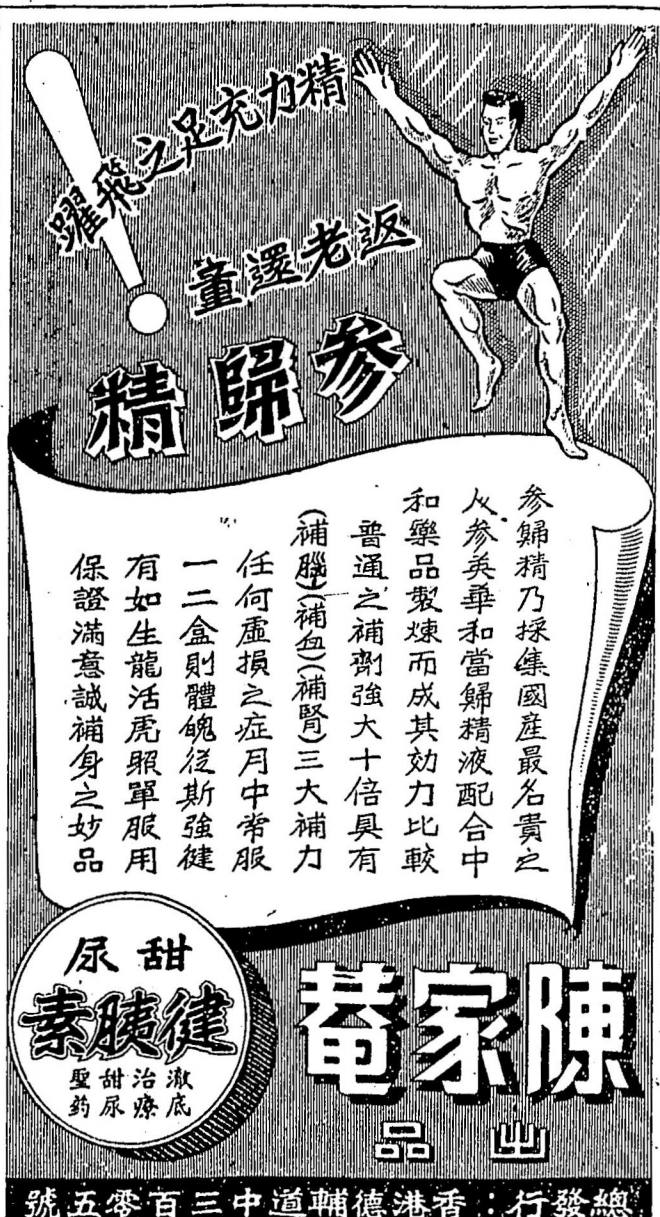 精力充足之飛躍
返老還童
參歸精
參歸精乃採集國產最名貴之
人參英華和當歸精液配合中
和藥品製煉而成其効力比較
普通之補劑強大十倍具有
(補腦)(補血)(補腎)三大補力
任何虛損之症月中常服
一二盒則體魄從斯強健
有如生龍活虎照單服用
保證滿意誠補身之妙品
陳家菴
出品
甜尿
健胰素
澈底
治療
甜尿
聖药
總發行：香港德輔道中三百零五號